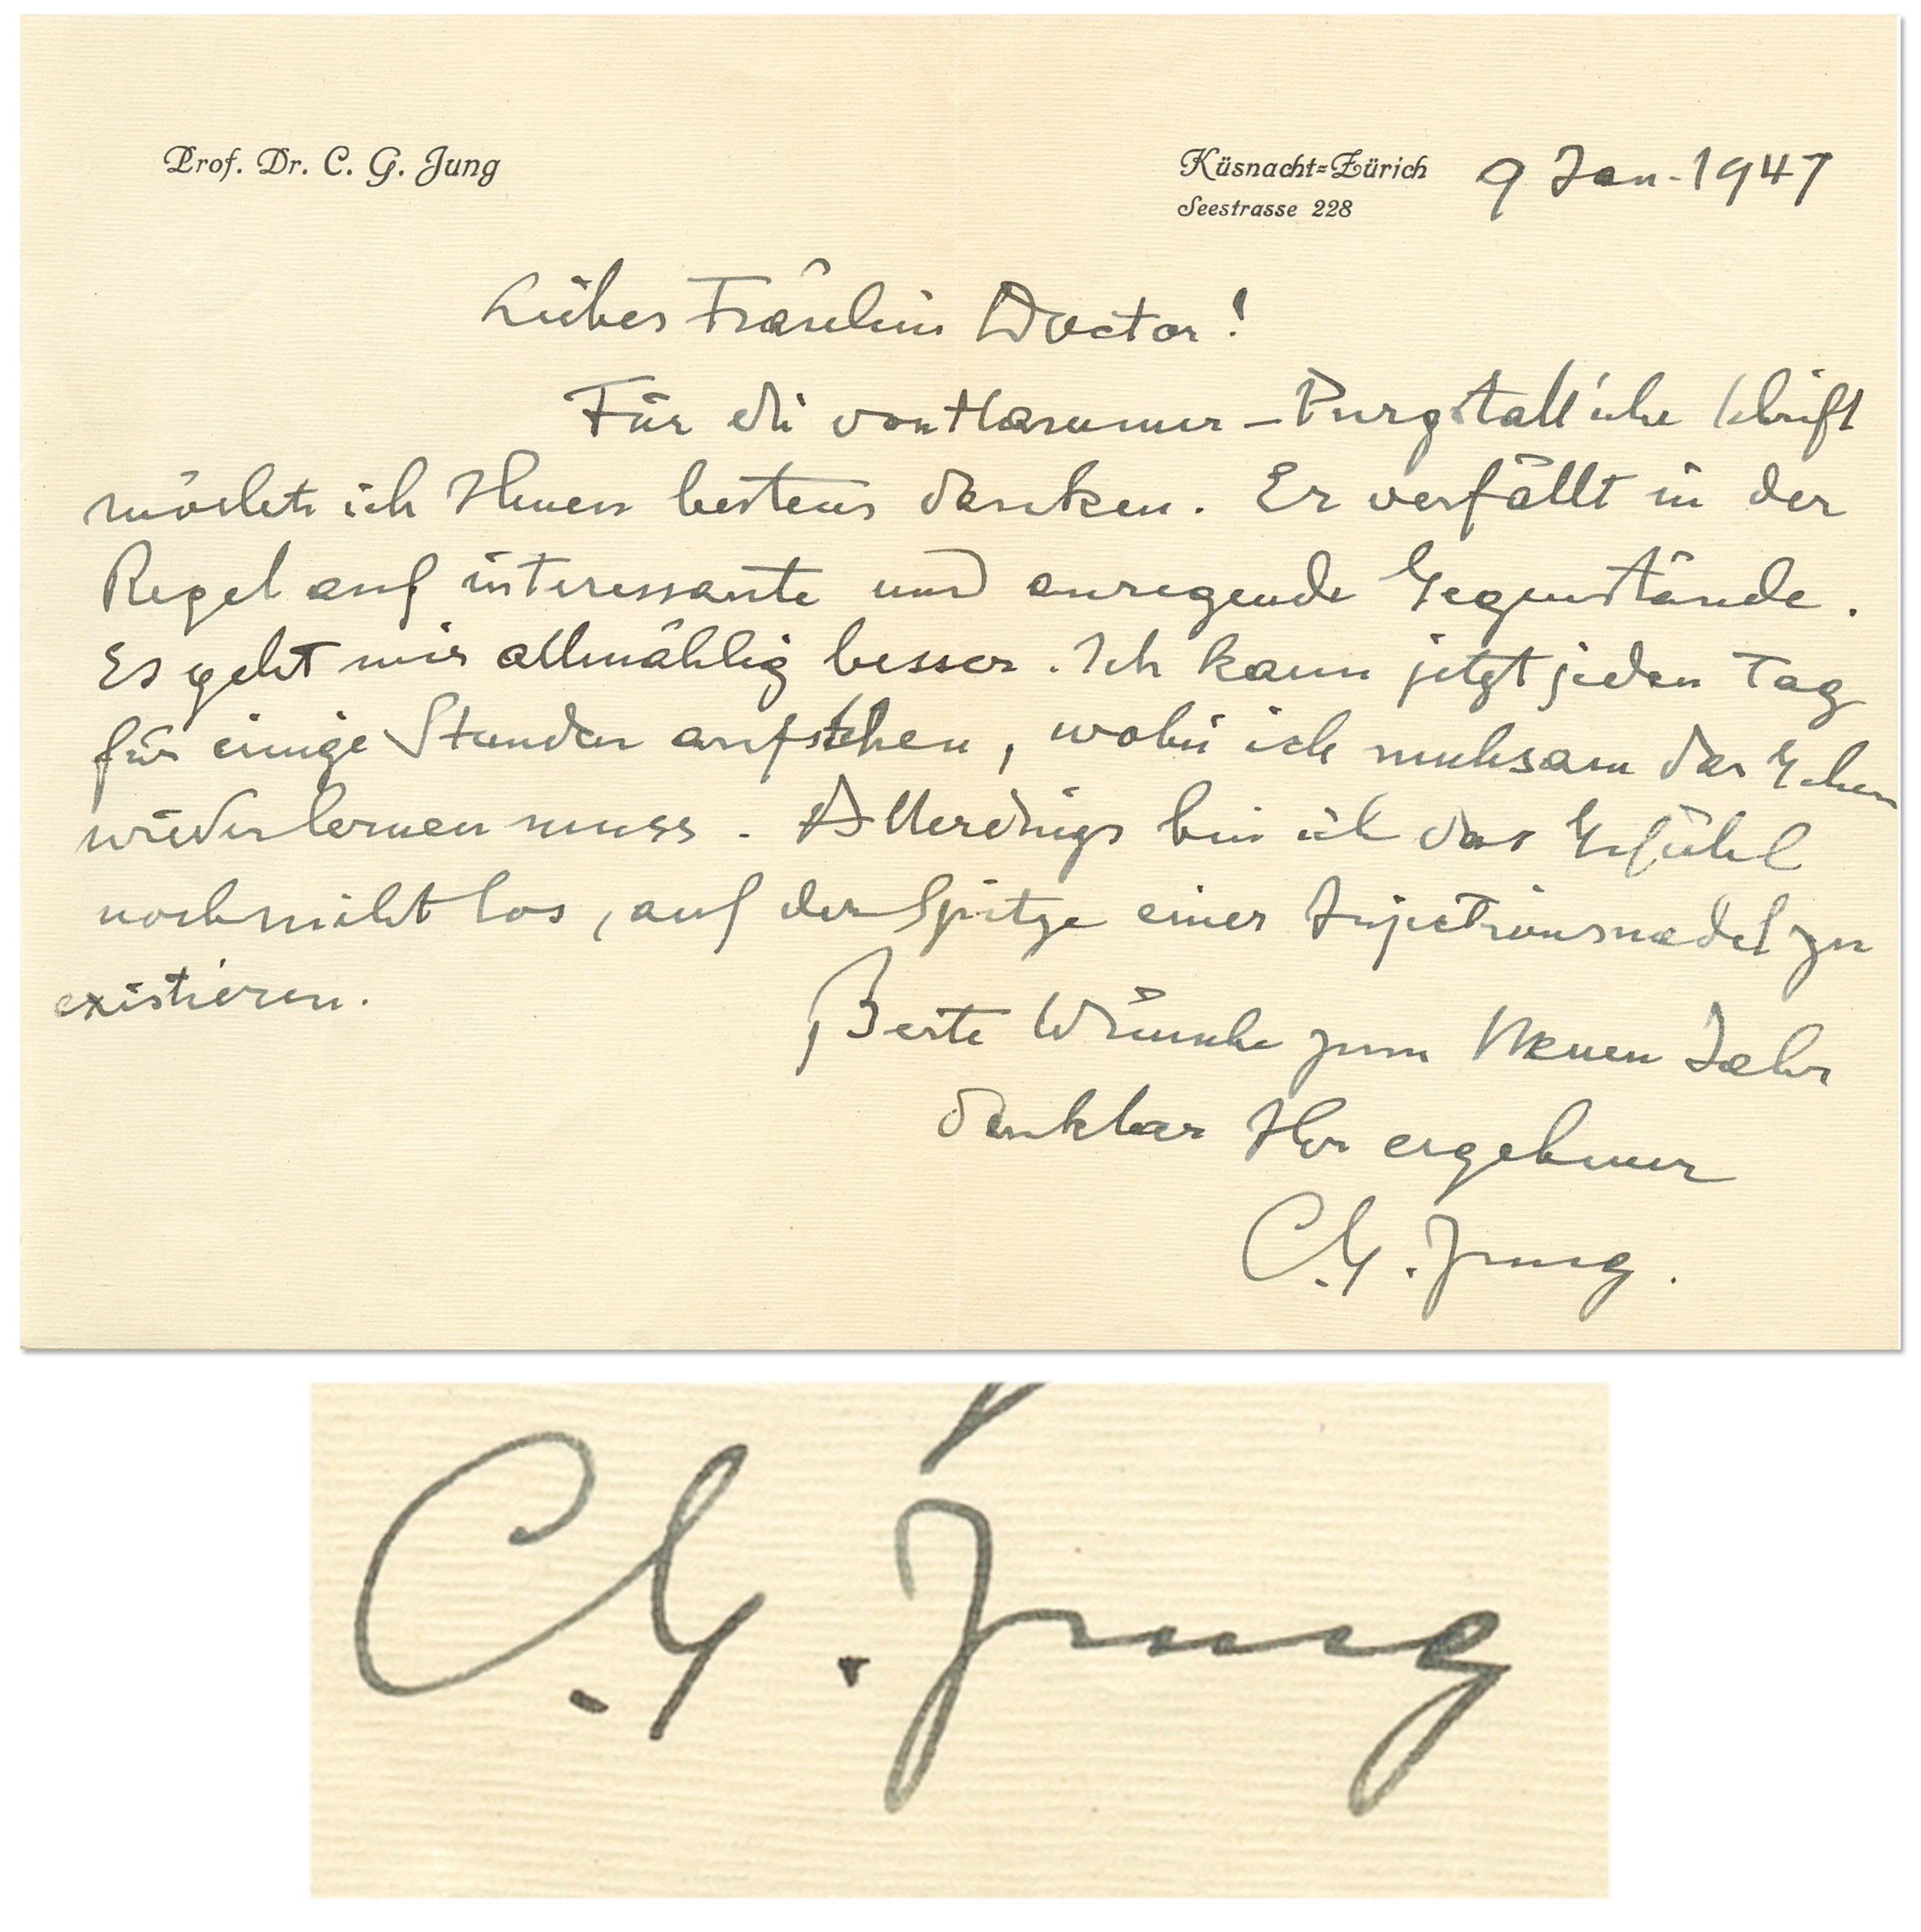 Prof. Dr. C. G. Jung
Küsnacht=Zürich 9 Jan. 1947
Seestrasse 228
Liebes Fräulein Doctor!
Für die von Hammer-Purgstall'sche Schrift
möchte ich Ihnen bestens danken. Er verfällt in der
Regel auf interessante und anregende Gegenstände.
Es geht mir allmählig besser. Ich kann jetzt jeden Tag
für einige Stunden aufstehen, wobei ich mühsam das Gehen
wiederlernen muss. Allerdings bin ich das Gefühl
noch nicht los, auf der Spitze einer Injectionsnadel zu
existieren.
Beste Wünsche zum Neuen Jahr
dankbar Ihr ergebener
C. G. Jung.
C. G. Jung